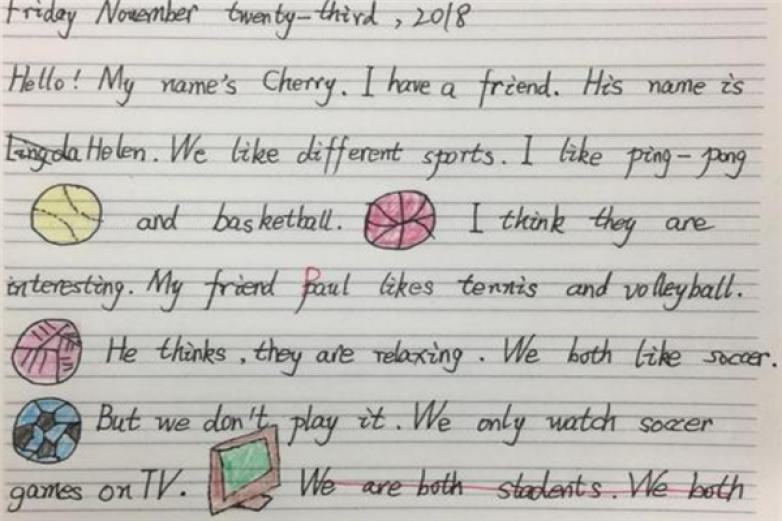 Friday November twenty-third, 2018
Hello! My name's Cherry. I have a friend. His name is
Lingda Helen. We like different sports. I like ping-pong
and basketball. I think they are
interesting. My friend Paul likes tennis and volleyball.
He thinks, they are relaxing. We both like soccer.
But we don't play it. We only watch soccer
games on TV. We are both students. We both